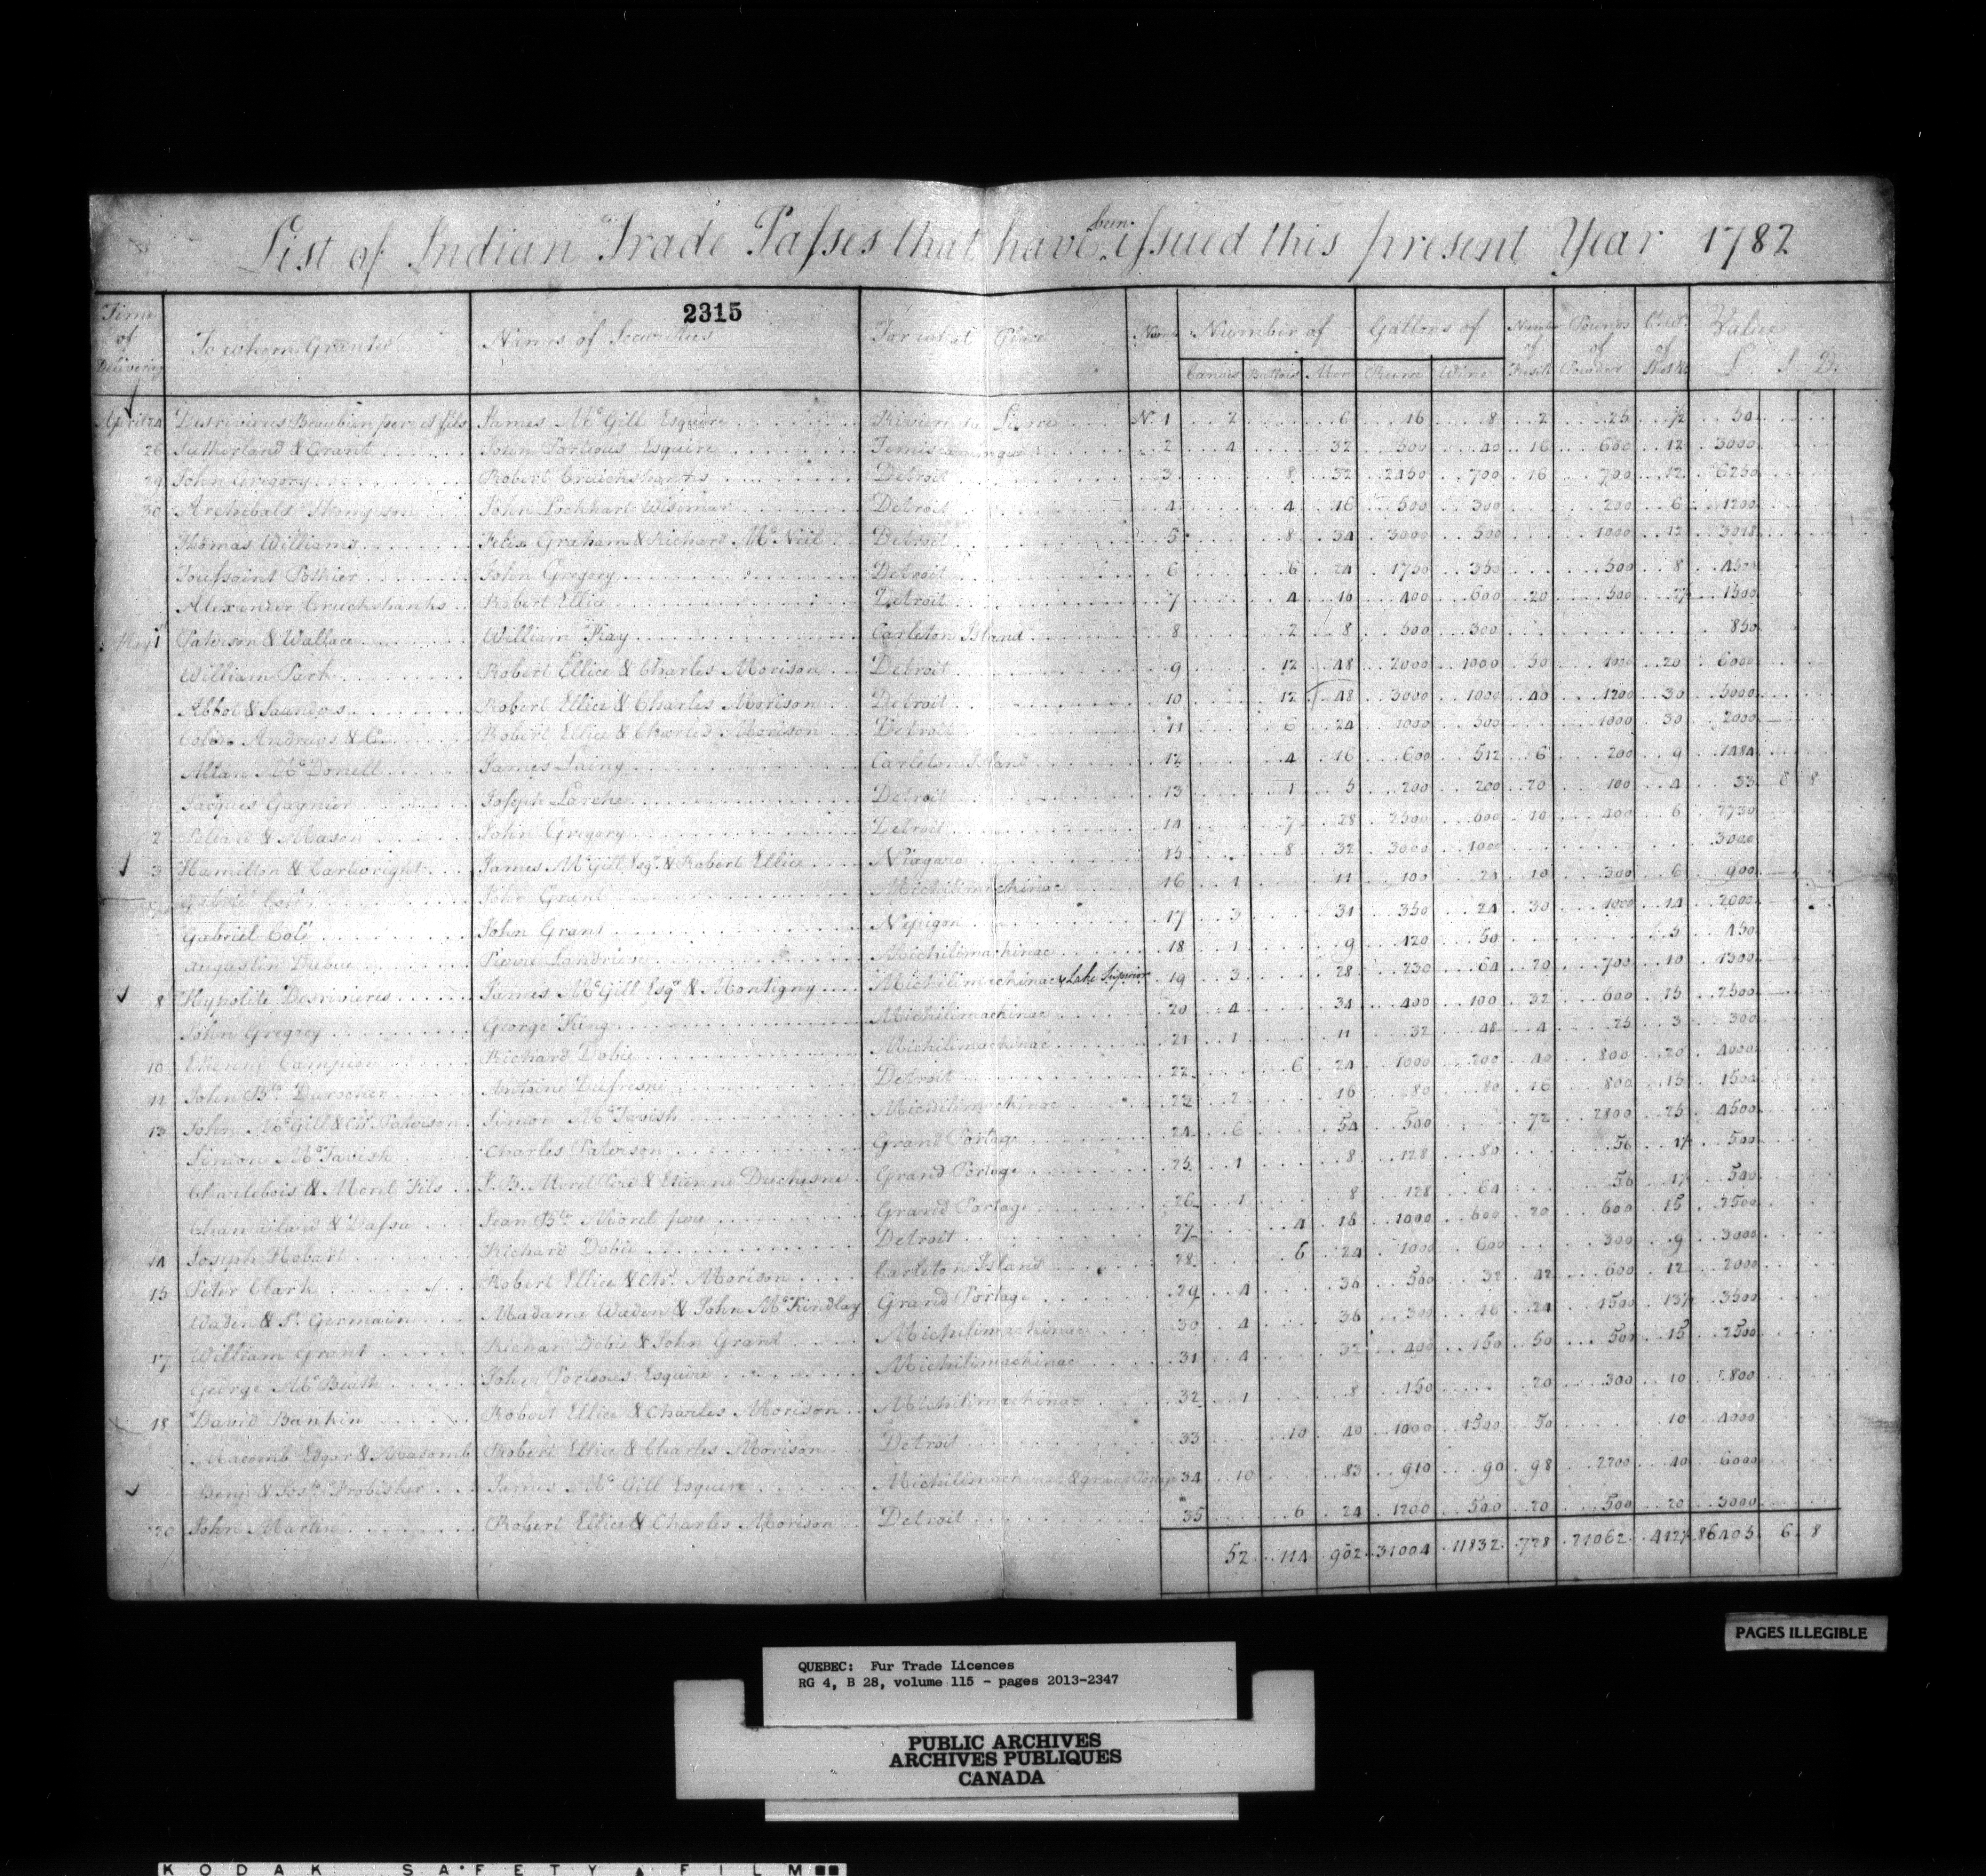 List of Indian Trade Passes that have been issued this present Year 1782
2315
Time of Delivering | To whom Granted | Names of Securities | For what Place | Number | Number of | Gallons of | Number of | Pounds of | Cwt of | Value
Canoes | Battoes | Men | Rum | Wine | Fusils | Powder | Shot &c | £ | S | D.
April 24 Desrivieres Beaubien pere et fils James McGill Esquire Riviere du Lievre No. 1 2 6 16 8 2 25 ½ 50
26 Sutherland & Grant John Porteous Esquire Temiscamingue 2 4 32 300 40 16 600 12 3000
29 John Gregory Robert Cruickshanks Detroit 3 8 32 2450 700 16 700 12 6250
30 Archibald Thompson John Lockhart Wiseman Detroit 4 4 16 500 300 200 6 1200
Thomas Williams Felix Graham & Richard McNeil Detroit 5 8 34 3000 500 1000 12 3018
Toussaint Pothier John Gregory Detroit 6 6 24 1750 350 500 8 4500
Alexander Cruickshanks Robert Ellice Detroit 7 4 16 400 600 20 500 1500
May 1 Paterson & Wallace William Kay Carleton Island 8 2 8 500 300 850
William Park Robert Ellice & Charles Morison Detroit 9 12 48 2000 1000 50 1000 20 6000
Abbot & Saunders Robert Ellice & Charles Morison Detroit 10 12 48 3000 1000 40 1200 30 5000
Colin Andrews & Co. Robert Ellice & Charles Morison Detroit 11 6 24 1000 500 1000 30 2000
Allan McDonell James Laing Carleton Island 12 4 16 600 512 6 200 9 1484
Jacques Gagnier Joseph Larche Detroit 13 1 5 200 200 20 100 4 33 8 8
2 & Mason John Gregory Detroit 14 7 28 2500 600 10 400 6 2730
3 Hamilton & Cartwright James McGill Esqr. & Robert Ellice Niagara 15 8 32 3000 1000 3000
Gabriel Coté John Grant Michilimackinac 16 1 11 100 24 10 300 6 900
Gabriel Coté John Grant Nepigon 17 3 31 350 24 30 1000 14 2000
Augustin Dubuc Pierre Landrieve Michilimackinac 18 1 9 120 50 5 450
8 Hypolite Desrivieres James McGill Esqr & Montigny Michilimackinac & Lake Superior 19 3 28 230 64 20 700 10 1300
John Gregory George King Michilimackinac 20 4 34 400 100 32 600 15 2500
10 Etienne Campion Richard Dobie Michilimackinac 21 1 11 32 48 4 25 3 300
11 John Bte. Durocher Antoine Dufresne Detroit 22 6 24 1000 200 40 800 20 4000
13 John McGill & Chs. Paterson Simon McTavish Michilimackinac 23 2 16 80 80 16 800 15 1500
Simon McTavish Charles Paterson Grand Portage 24 6 54 500 72 2800 25 4500
Charlebois & Morel Fils J. B. Morel Pere & Etienne Duchesne Grand Portage 25 1 8 128 80 56 500
Jean Bte. Morel pere Grand Portage 26 1 8 128 64 56 500
14 Joseph Hobart Richard Dobie Detroit 27 4 16 1000 600 20 600 15 3500
15 Peter Clark Robert Ellice & Chs. Morison Carleton Island 28 6 24 1000 600 300 9 3000
Waden & St. Germain Madame Waden & John McKindlay Grand Portage 29 4 36 560 32 42 600 12 2000
17 William Grant Richard Dobie & John Grant Michilimackinac 30 4 36 300 16 24 1500 13½ 3500
George McBeath John Porteous Esquire Michilimackinac 31 4 32 400 150 50 500 15 2500
18 David Rankin Robert Ellice & Charles Morison Michilimackinac 32 1 8 150 20 300 10 800
Macomb Edgar & Macomb Robert Ellice & Charles Morison Detroit 33 10 40 1000 1500 50 10 4000
Benj. & Josh. Frobisher James McGill Esquire Michilimackinac & grand Portage 34 10 83 910 90 98 2200 40 6000
20 John Martin Robert Ellice & Charles Morison Detroit 35 6 24 1200 500 20 500 20 3000
52 114 902 31004 11832 728 21062 412½ 86405 6 8
PAGES ILLEGIBLE
QUEBEC: Fur Trade Licences
RG 4, B 28, volume 115 - pages 2013-2347
PUBLIC ARCHIVES
ARCHIVES PUBLIQUES
CANADA
KODAK SAFETY FILM